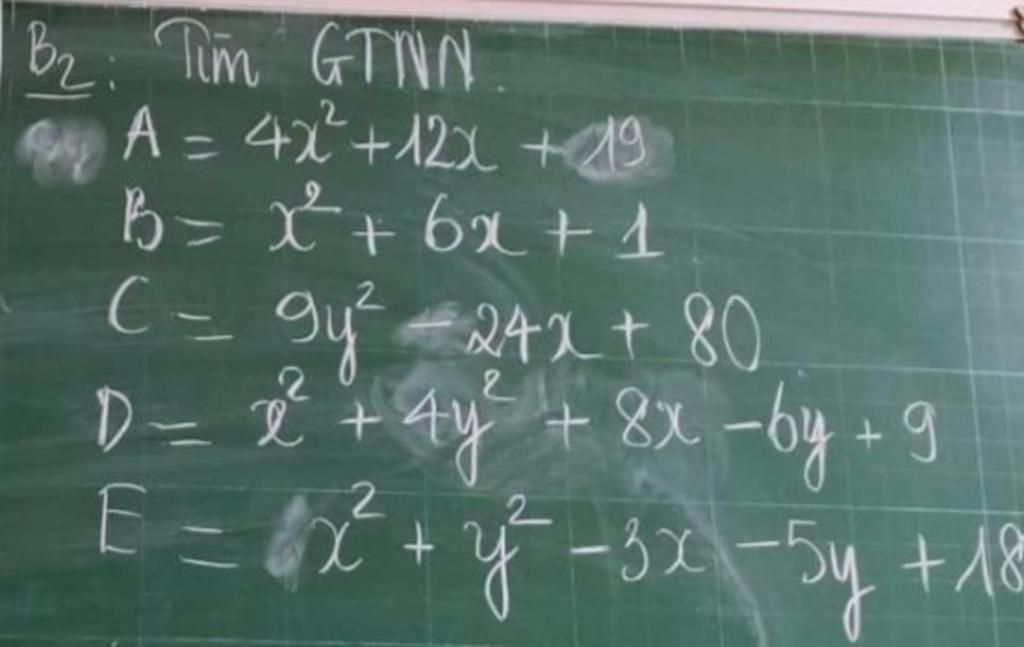 B2: Tìm GTNN.
A = 4x² + 12x + 19
B = x² + 6x + 1
C = 9y² - 24x + 80
D = x² + 4y² + 8x - 6y + 9
E = x² + y² - 3x - 5y + 18